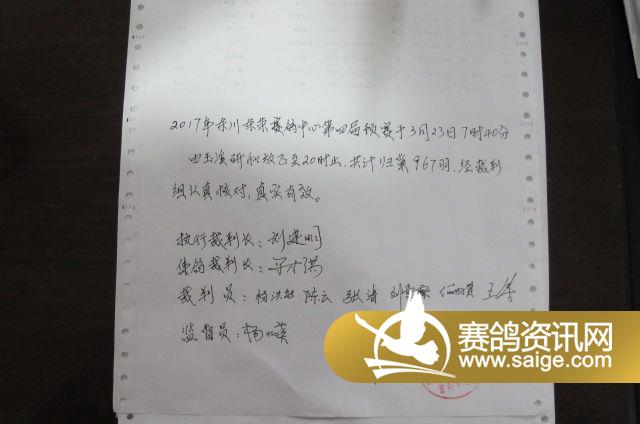 2017年东川保荣赛鸽中心第四届预赛于3月23日7时40分
由玉溪研和放飞至20时止,共计归巢967羽,经裁判
组认真核对,真实有效。
执行裁判长:刘建明
集鸽裁判长:
裁判员:杨洪 陈云 张清
监督员:杨
赛鸽资讯网
www.saige.com